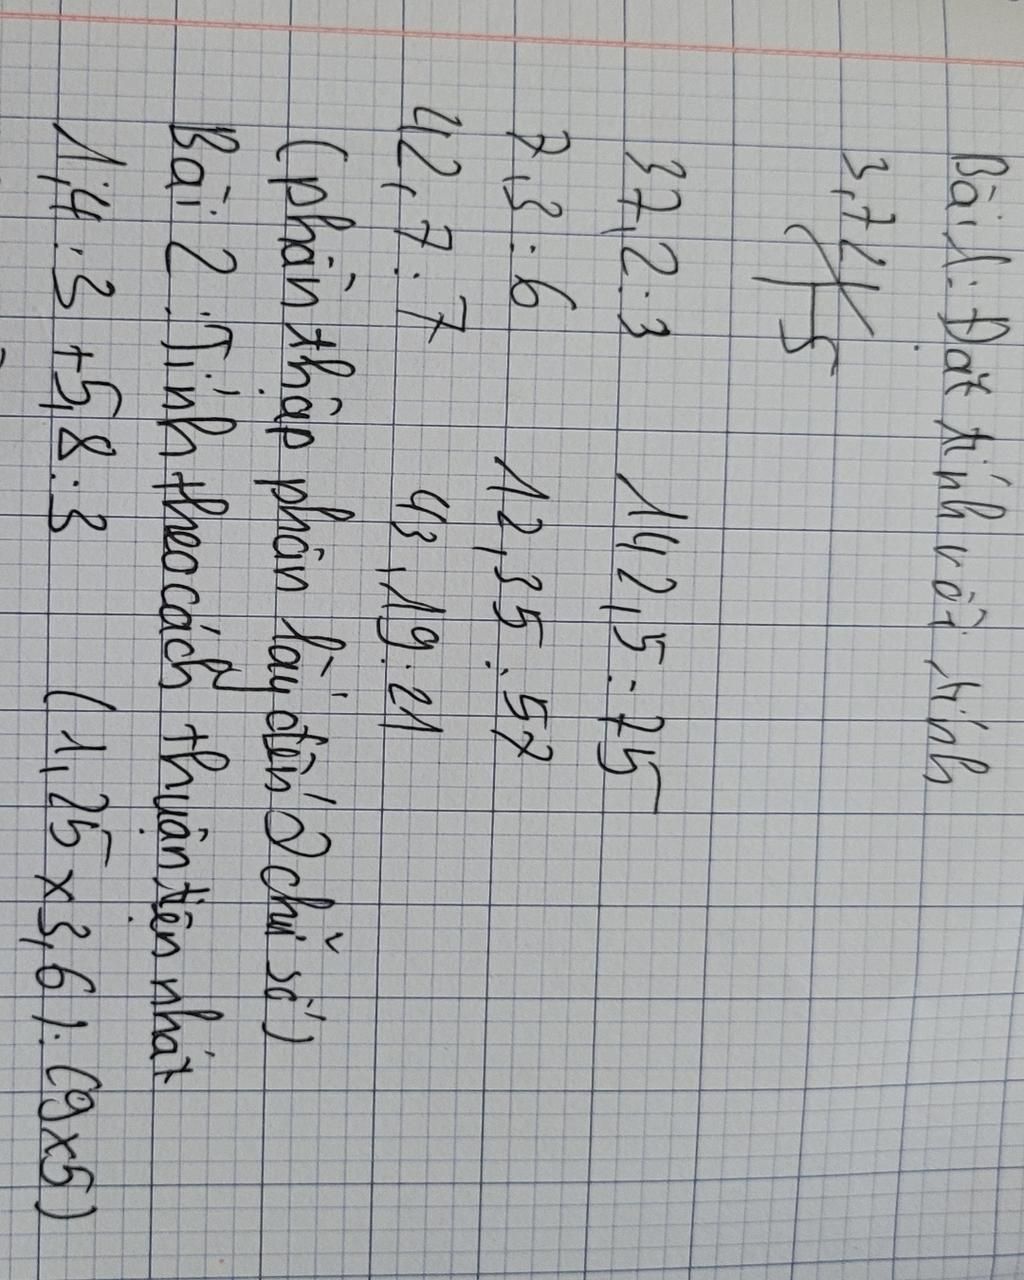 Bài 1: Đặt tính rồi tính
3,74
5
37,2:3 142,5:75
7,3:6 12,35:57
42,7:7 43,19:21
(phần thập phân lấy đến 2 chữ số)
Bài 2: Tính theo cách thuận tiện nhất
1,4:3+5,8:3 (1,25x3,6):(9x5)